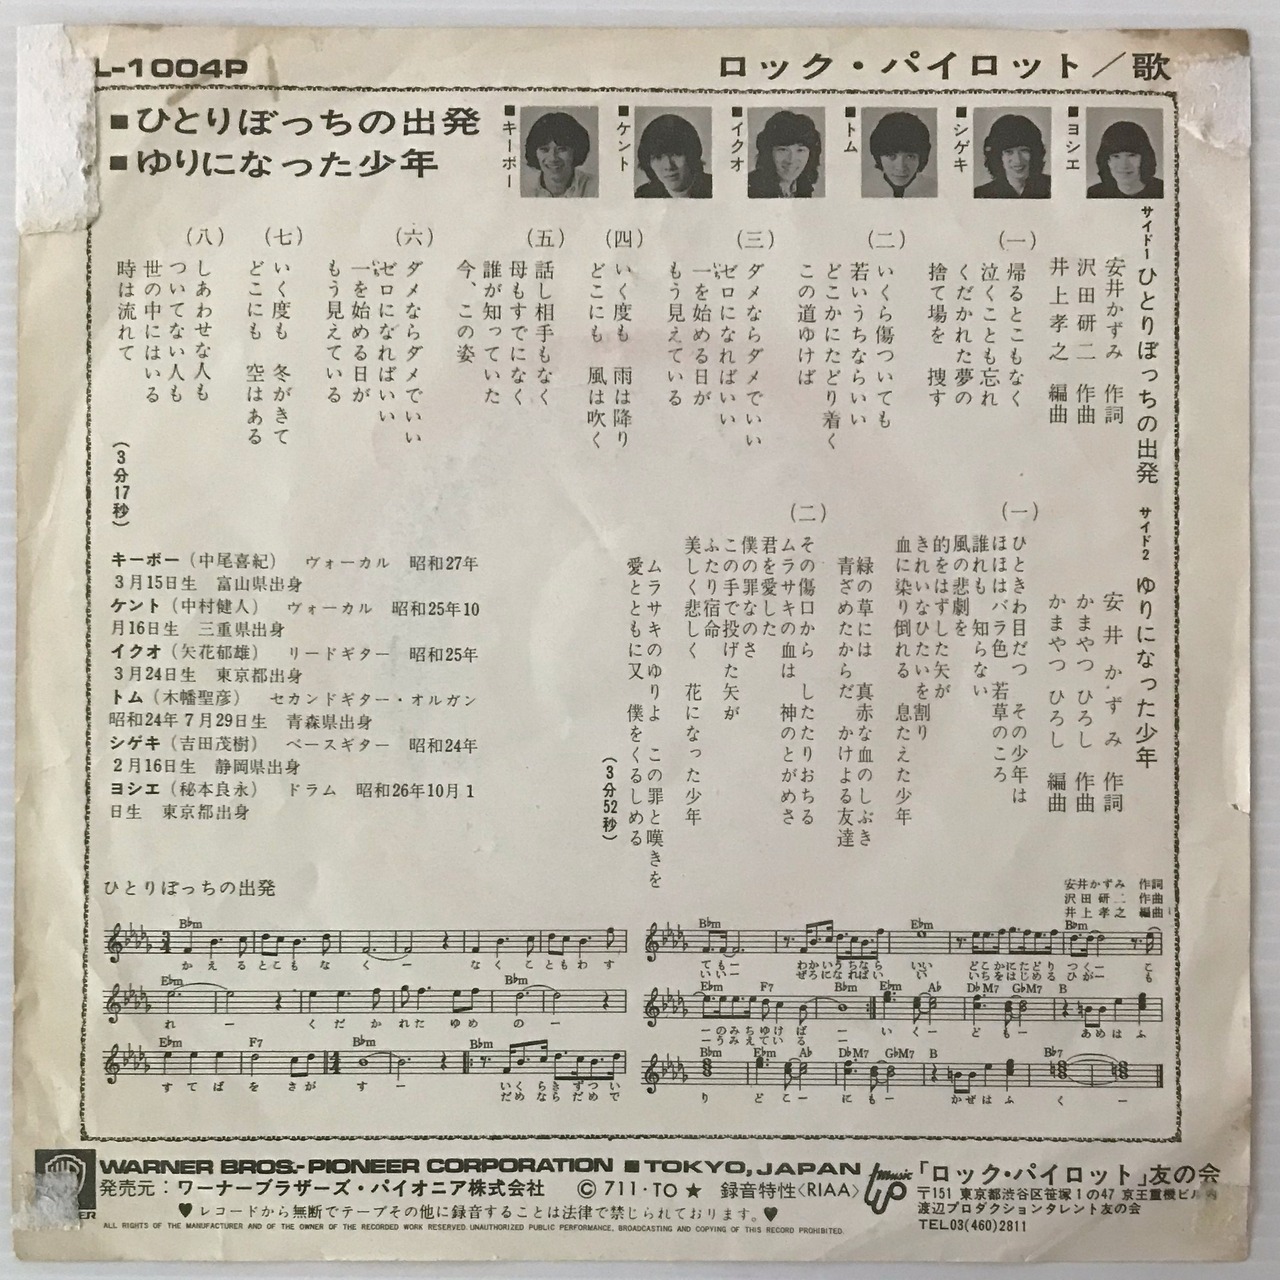 L-1004P
ロック・パイロット／歌
■ひとりぼっちの出発
■ゆりになった少年
■キーボー
■ケント
■イクオ
■トム
■シゲキ
■ヨシエ
サイド1 ひとりぼっちの出発
安井かずみ 作詞
沢田研二 作曲
井上孝之 編曲
(一)
帰るとこもなく
泣くことも忘れ
くだかれた夢の
捨て場を 捜す
(二)
いくら傷ついても
若いうちならいい
どこかにたどり着く
この道ゆけば
(三)
ダメならダメでいい
ゼロになればいい
一を始める日が
もう見えている
(四)
いく度も 雨は降り
どこにも 風は吹く
(五)
話し相手もなく
母もすでになく
誰が知っていた
今、この姿
(六)
ダメならダメでいい
ゼロになればいい
一を始める日が
もう見えている
(七)
いく度も 冬がきて
どこにも 空はある
(八)
しあわせな人も
ついてない人も
世の中にはいる
時は流れて
(3分17秒)
サイド2 ゆりになった少年
安井かずみ 作詞
かまやつひろし 作曲
かまやつひろし 編曲
(一)
ひときわ目だつ その少年は
ほほはバラ色 若草のころ
誰れも 知らない
風の悲劇を
的をはずした矢が
きれいなひたいを割り
血に染り倒れる 息たえた少年
緑の草には 真赤な血のしぶき
青ざめたからだ かけよる友達
(二)
その傷口から したたりおちる
ムラサキの血は 神のとがめさ
君を愛した
僕の罪なのさ
この手で投げた矢が
ふたり宿命
美しく悲しく 花になった少年
ムラサキのゆりよ この罪と嘆きを
愛とともに又 僕をくるしめる
(3分52秒)
キーボー（中尾喜紀） ヴォーカル 昭和27年
3月15日生 富山県出身
ケント（中村健人） ヴォーカル 昭和25年10
月16日生 三重県出身
イクオ（矢花郁雄） リードギター 昭和25年
3月24日生 東京都出身
トム（木幡聖彦） セカンドギター・オルガン
昭和24年7月29日生 青森県出身
シゲキ（吉田茂樹） ベースギター 昭和24年
2月16日生 静岡県出身
ヨシエ（秘本良永） ドラム 昭和26年10月1
日生 東京都出身
ひとりぼっちの出発
安井かずみ 作詞
沢田研二 作曲
井上孝之 編曲
B♭m
かえるとこもなくー なくこともわす
E♭m B♭m
れー くだかれたゆめのー
E♭m F7 B♭m B♭m
すてばをさがすー いくらきずつい
だめならだめで
B♭m E♭m B♭m
てもー わかいうちなら いい どこかにたどりつくー こ
いいー ぜろになればい い いちをはじめるひがー も
E♭m F7 B♭m E♭m A♭ D♭M7 G♭M7 B
ーのみちゆけばー いくーどもー あめはふ
ーうみえているー
B♭m E♭m A♭ D♭M7 G♭M7 B B♭7
り どこーにもー かぜはふくー
WARNER BROS.-PIONEER CORPORATION ■ TOKYO, JAPAN
発売元：ワーナーブラザーズ・パイオニア株式会社 Ⓒ 711・TO ★ 録音特性〈RIAA〉
♥レコードから無断でテープその他に録音することは法律で禁じられております。♥
ALL RIGHTS OF THE MANUFACTURER AND OF THE OWNER OF THE RECORDED WORK RESERVED. UNAUTHORIZED PUBLIC PERFORMANCE, BROADCASTING AND COPYING OF THIS RECORD PROHIBITED.
Music UP
「ロック・パイロット」友の会
〒151 東京都渋谷区笹塚1の47 京王重機ビル内
渡辺プロダクションタレント友の会
TEL03(460)2811